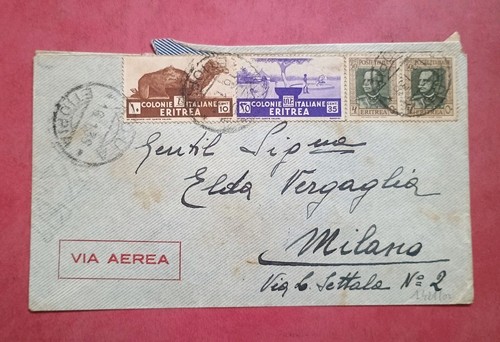 10 COLONIE ITALIANE 10
ERITREA
COLONIE ITALIANE 35
ERITREA
POSTE ITALIANE
ERITREA
POSTE ITALIANE
ERITREA
ETIOPIA
Gentil Signa
Elda Vergaglia
Milano
Via L. Settala No 2
VIA AEREA